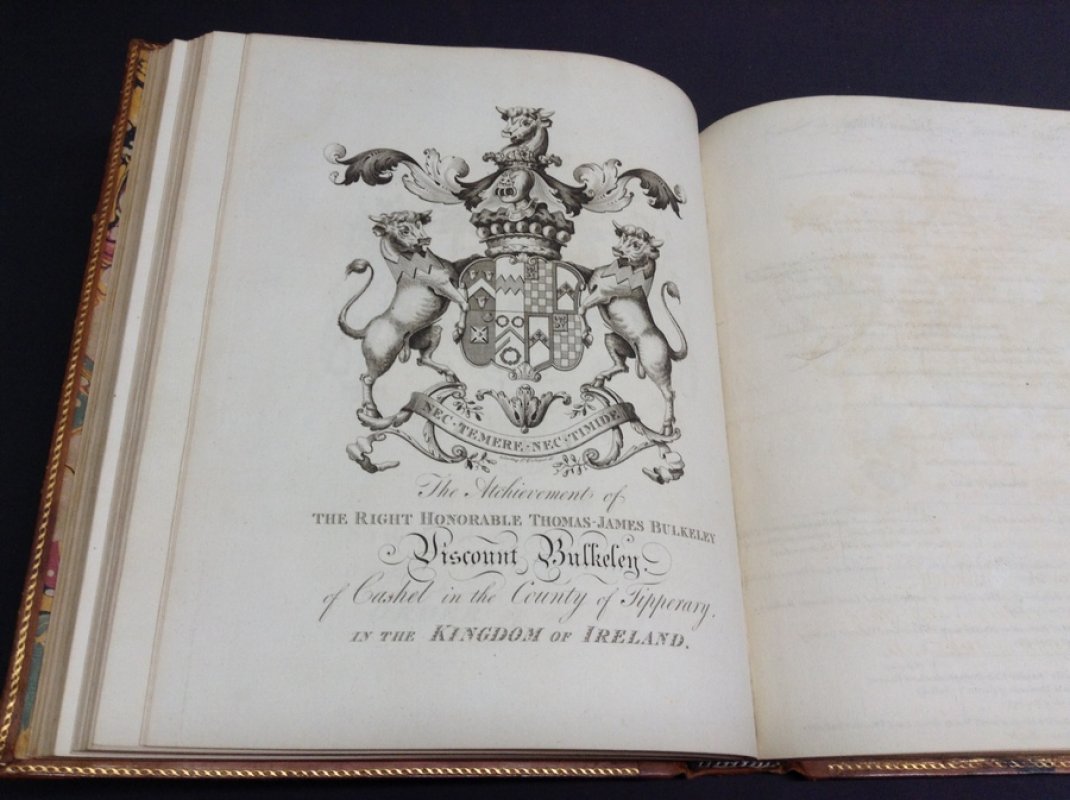 NEC·TEMERE·NEC·TIMIDE
The Atchievements of
THE RIGHT HONORABLE THOMAS-JAMES BULKELEY
Viscount Bulkeley.
of Cashel in the County of Tipperary.
IN THE KINGDOM OF IRELAND.